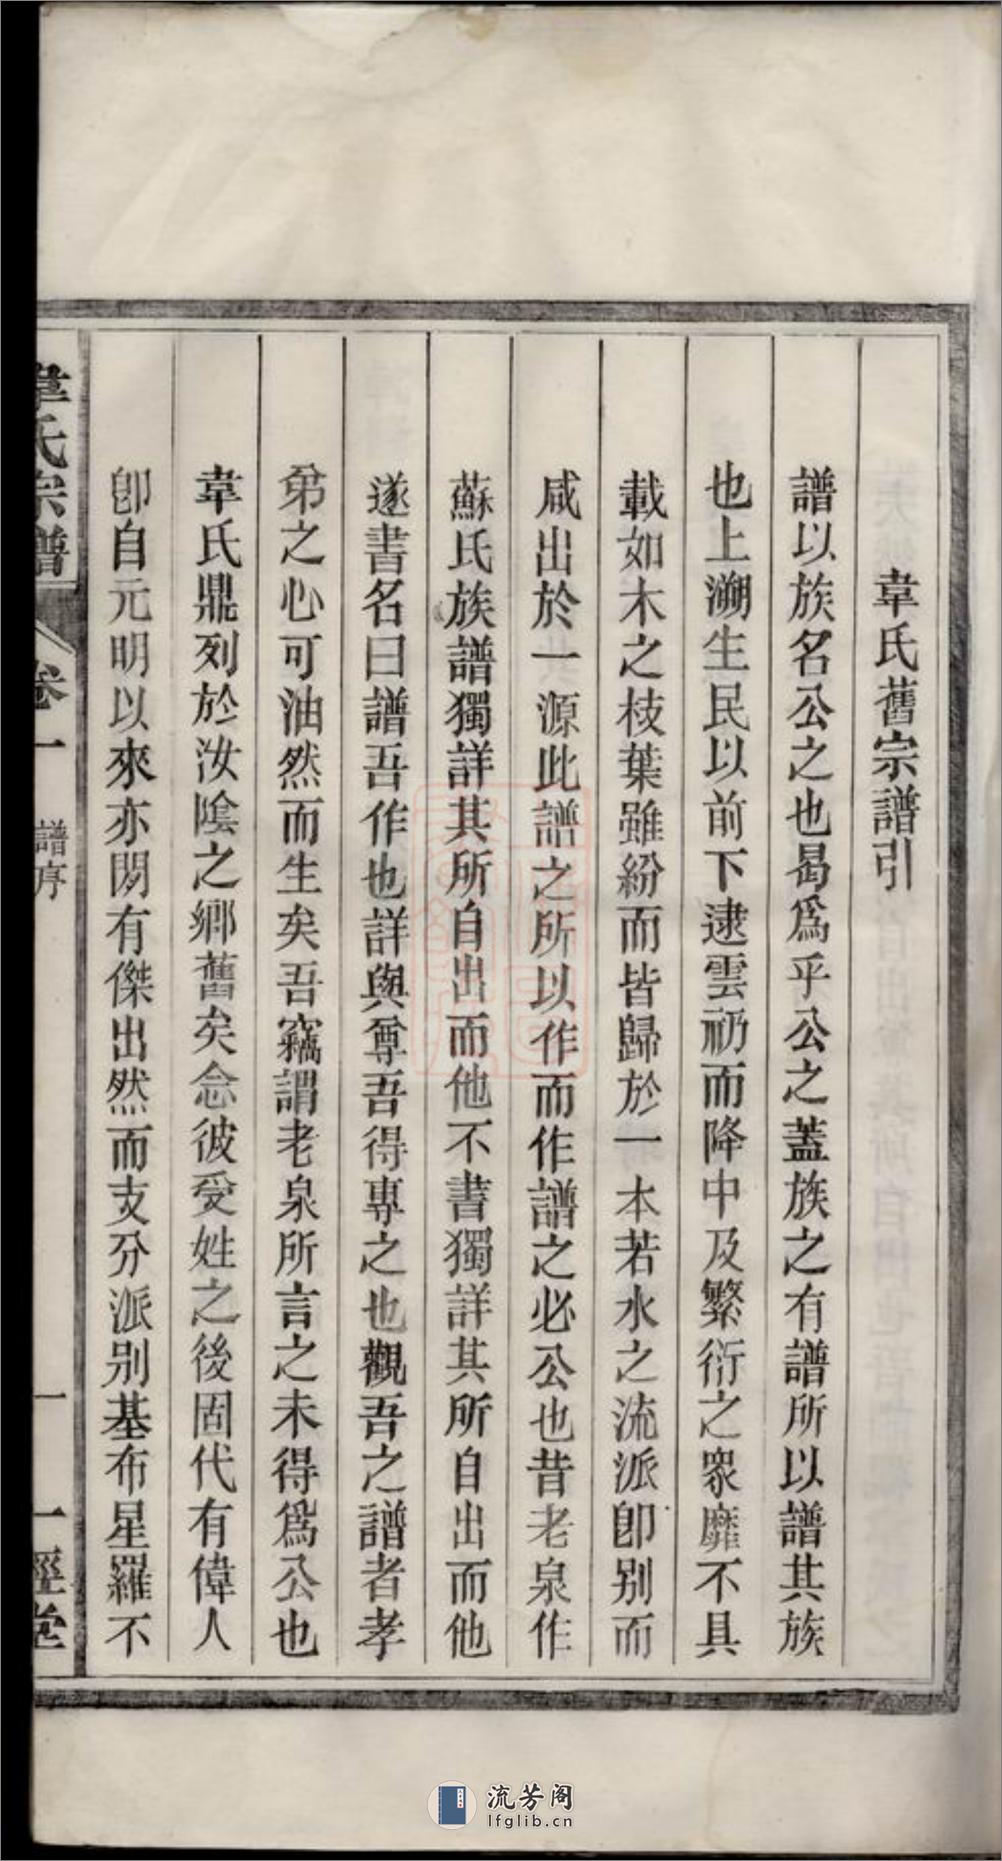 韋氏舊宗譜引
譜以族名公之也曷爲乎公之蓋族之有譜所以譜其族
也上溯生民以前下逮雲礽而降中及繁衍之衆靡不具
載如木之枝葉雖紛而皆歸於一本若水之流派卽别而
咸出於一源此譜之所以作而作譜之必公也昔老泉作
蘇氏族譜獨詳其所自出而他不書獨詳其所自出而他
遂書名曰譜吾作也詳與尊吾得專之也觀吾之譜者孝
弟之心可油然而生矣吾竊謂老泉所言之未得爲公也
韋氏鼎列於汝陰之鄉舊矣念彼受姓之後固代有偉人
卽自元明以來亦閒有傑出然而支分派别基布星羅不
韋氏宗譜 卷一 譜序 一 一經堂
流芳阁
lfglib.cn